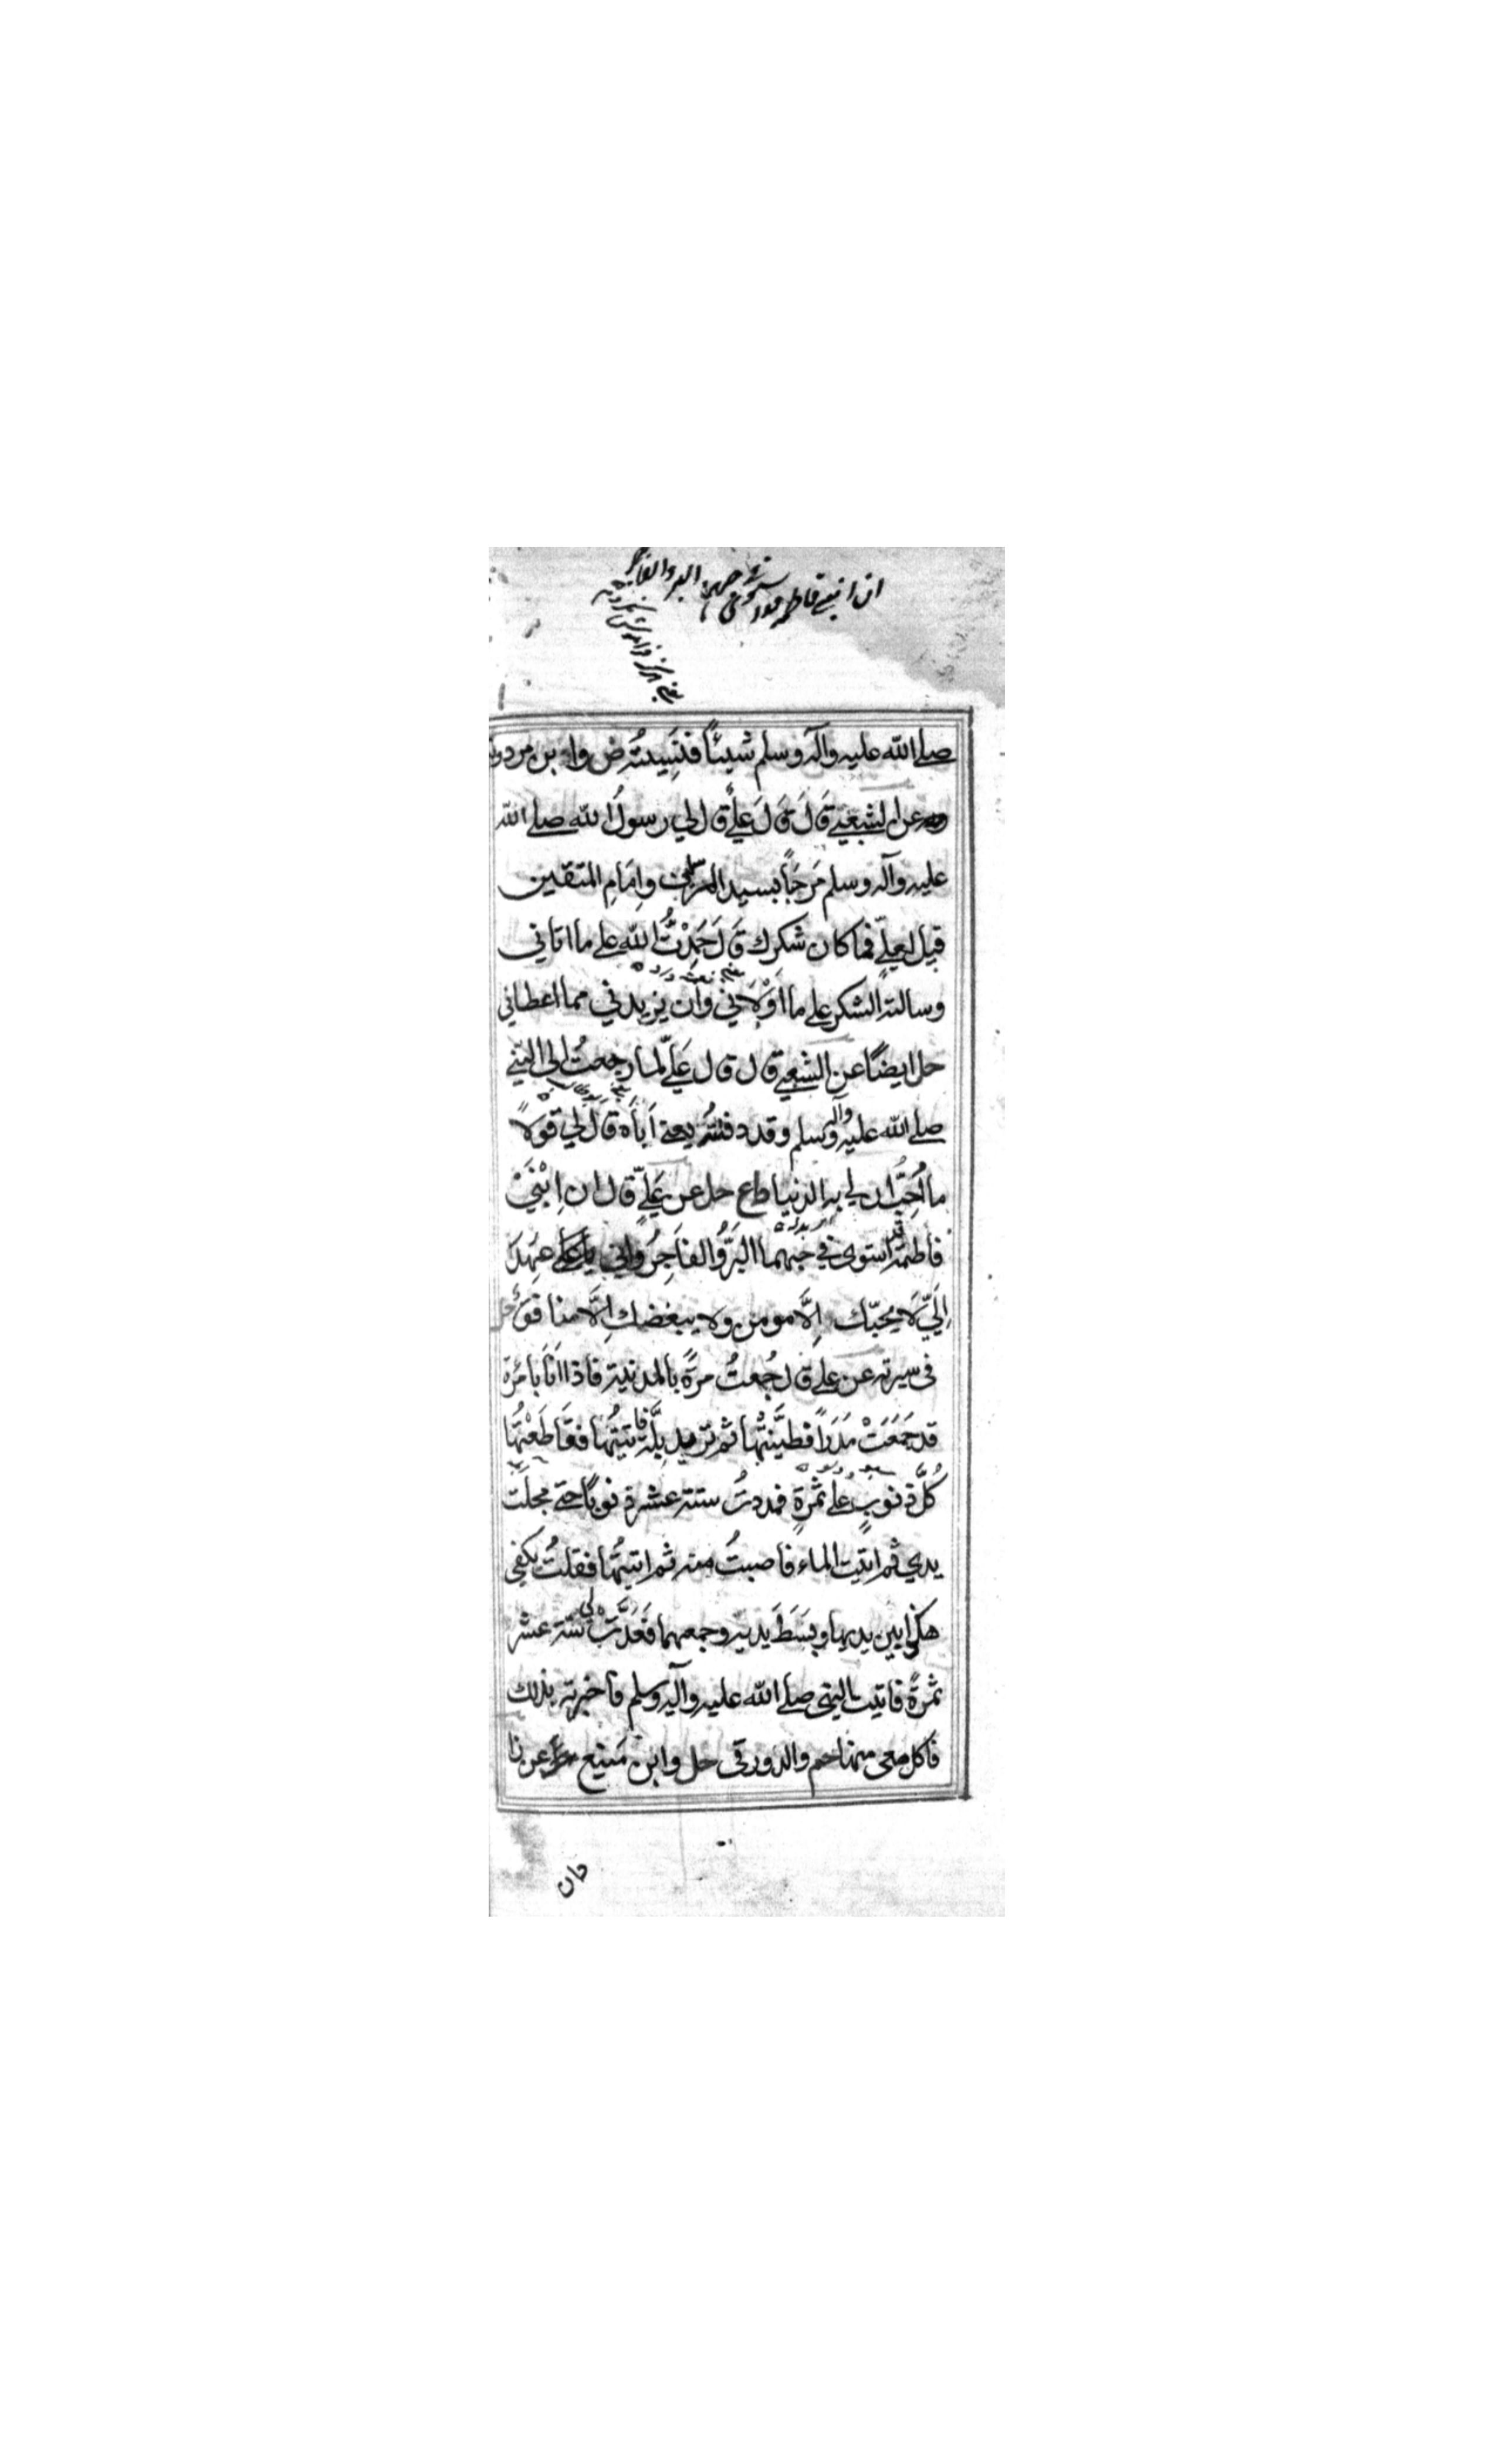 ان ابنی فاطمة قد استوی فی حبهما البر والفاجر
صلے الله علیه وآله وسلم شیئاً فنَسِیتُه ض وا بن مردویه
عن الشعبي قَالَ قَالَ علیٌّ قال لي رسولُ الله صلے الله
علیه وآله وسلم مَرحَباً بسید المسلمین وإمَامِ المتقین
قیل لعلیٍّ فما کان شکرك قَالَ حَمِدْتُ الله علی ما اتاني
وسالته الشکر علی ما اَوْلَاني وان یزیدني مما اعطاني
حل ایضاً عن الشعبي قال قال عَليّ لما رجعتُ إلی النبي
صلے الله علیه وآله وسلم وقد دفنتُه یعنے اَبَاه قَالَ لي قَوْلاً
ما اُحِبُّ ان لي به الدنیا ط ع حل عن عَلِيٍّ قال ان اِبْنَيْ
فاطمة قد استوی في حبهما البَرُّ والفَاجِرُ وإني عهد
إلَيّ لَا یحبّك إلَّا مومن ولا یبغضك إلَّا منافق حل
فی سیرته عن علي قال جُعتُ مرةً بالمدنیة فاذا انَا بامرَة
قد جَمَعَتْ مَدَراً فظَنَنْتُها ترید بلَّه فاتیتُها فقَاطَعْتُها
کُلَّ ذنوبٍ علی تمرةٍ فمددتُ ستة عشر ذنوباً حتے مجلَت
یدي ثم اتیت الماء فاصبتُ منه ثم اتیتُها فقلتُ بکفي
هکذا بین یدیها وبَسَطَ یدیه وجمعهما فَعَدَّتْ لي ستة عشر
تمرةً فاتیت النبی صلے الله علیه وآله وسلم فاخبرته بذلك
فاکل معی منها حم والدورقی حل وابن مَنیع عن زا
ذان